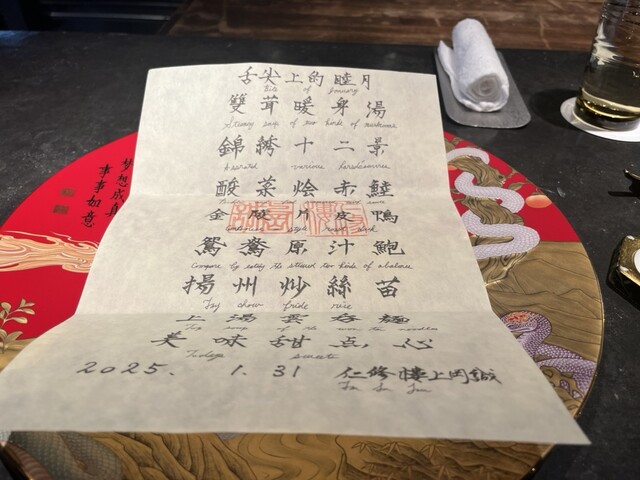 舌尖上的睦月
of January
雙茸暖身湯
Steamed soup of two kinds of mushrooms
錦繡十二景
Assorted various horsdoeuvres
酸菜燴赤鯥
金陵片皮鴨
鴛鴦原汁鮑
Compare by eating the stewed two kinds of abalone
揚州炒絲苗
fried rice
上湯雲吞麵
Top soup of the noodles
美味甜点心
Todays sweets
2025. 1. 31 仁修樓上岡誠
梦想成真
事事如意